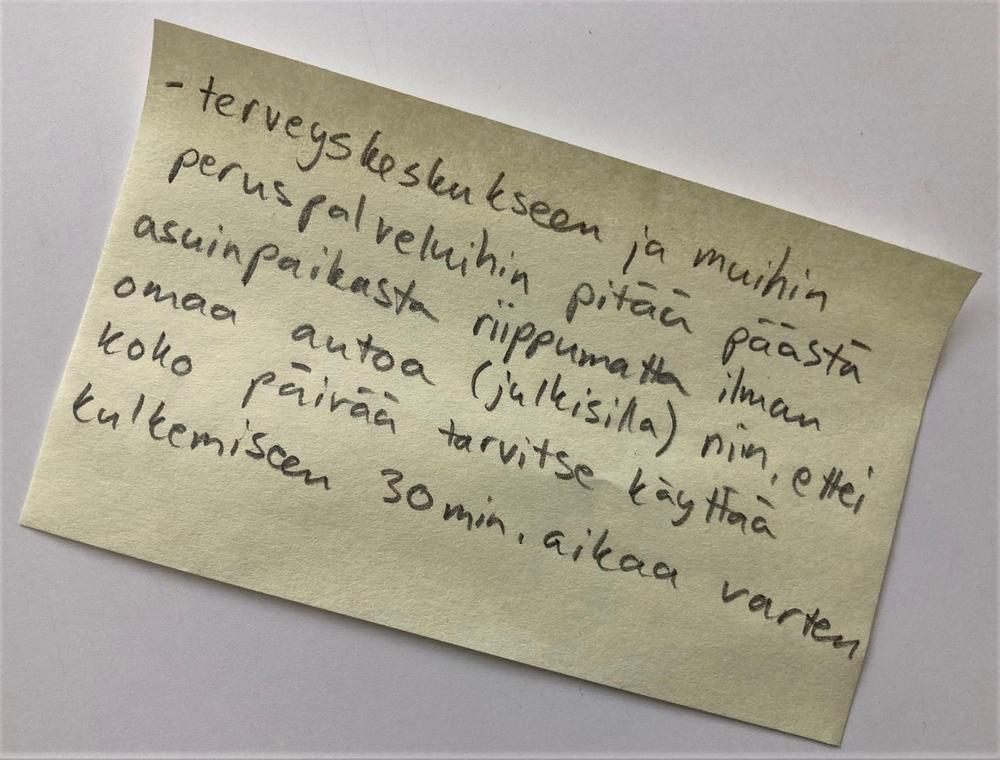 - terveyskeskukseen ja muihin
peruspalveluihin pitää päästä
asuinpaikasta riippumatta ilman
omaa autoa (julkisilla) niin, ettei
koko päivää tarvitse käyttää
kulkemiseen 30 min. aikaa varten